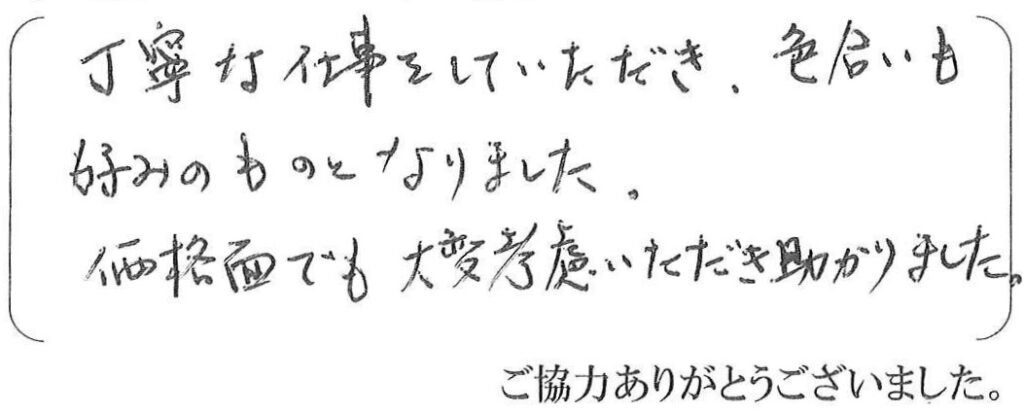 丁寧な仕事をしていただき、色合いも
好みのものとなりました。
価格面でも大変考慮いただき助かりました。
ご協力ありがとうございました。